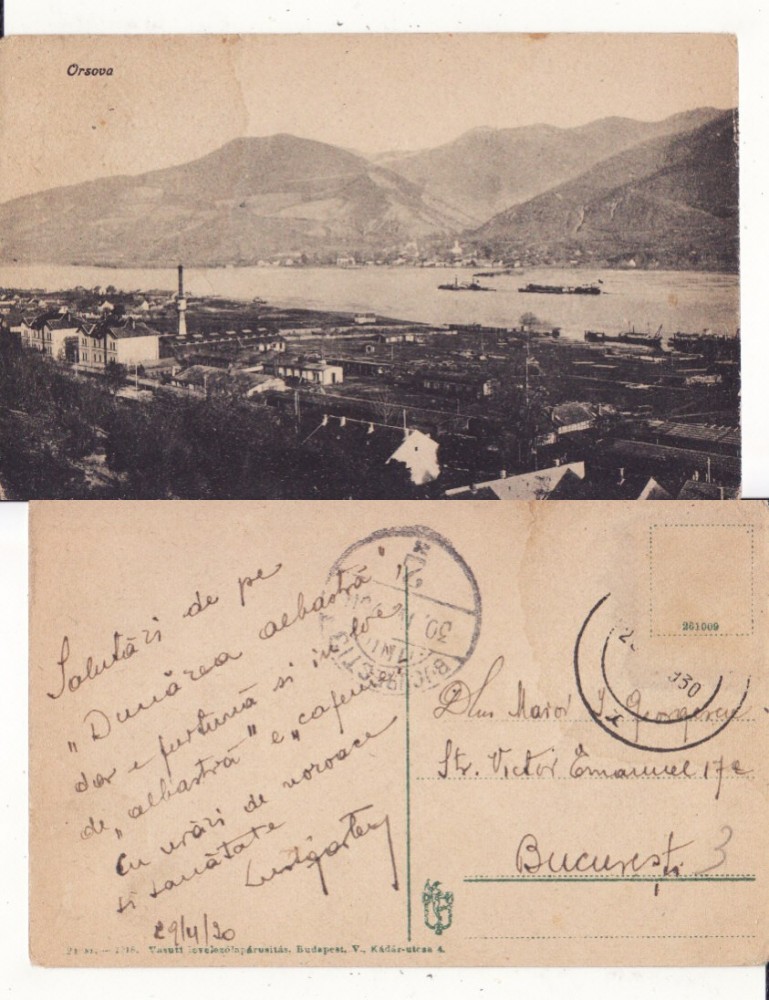 Orsova
Salutări de pe
„Dunărea albastră”,
dar e furtună și în loc
de „albastră” e „cafenie”
Cu urări de noroace
și sănătate
29/4/30
261009
Dlui Maior I. Georgescu
Str. Victor Emanuel 17
București 3
BUCUREȘTI
30.
Vasuti levelezőlapárusitás, Budapest, V., Kádár-utcza 4.